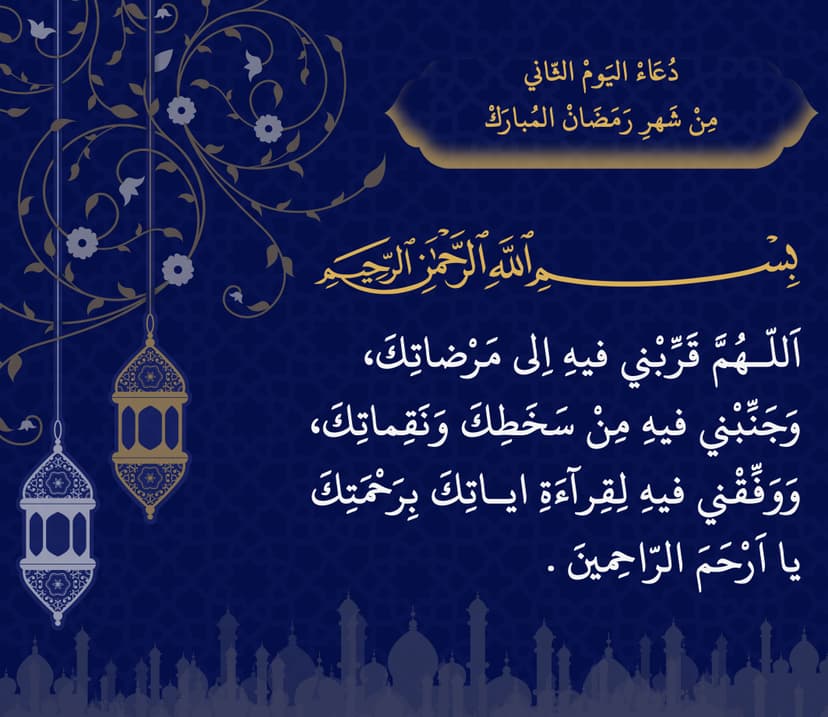 دُعَاءْ اليَومْ الثّاني
مِنْ شَهرِ رَمَضَانْ المُبارَكْ
بِسْمِ ٱللَّهِ ٱلرَّحْمَٰنِ ٱلرَّحِيمِ
اَللّـهُمَّ قَرِّبْني فيهِ اِلى مَرْضاتِكَ،
وَجَنِّبْني فيهِ مِنْ سَخَطِكَ وَنَقِماتِكَ،
وَوَفِّقْني فيهِ لِقِرآءَةِ ايـاتِكَ بِرَحْمَتِكَ
يا اَرْحَمَ الرّاحِمينَ .